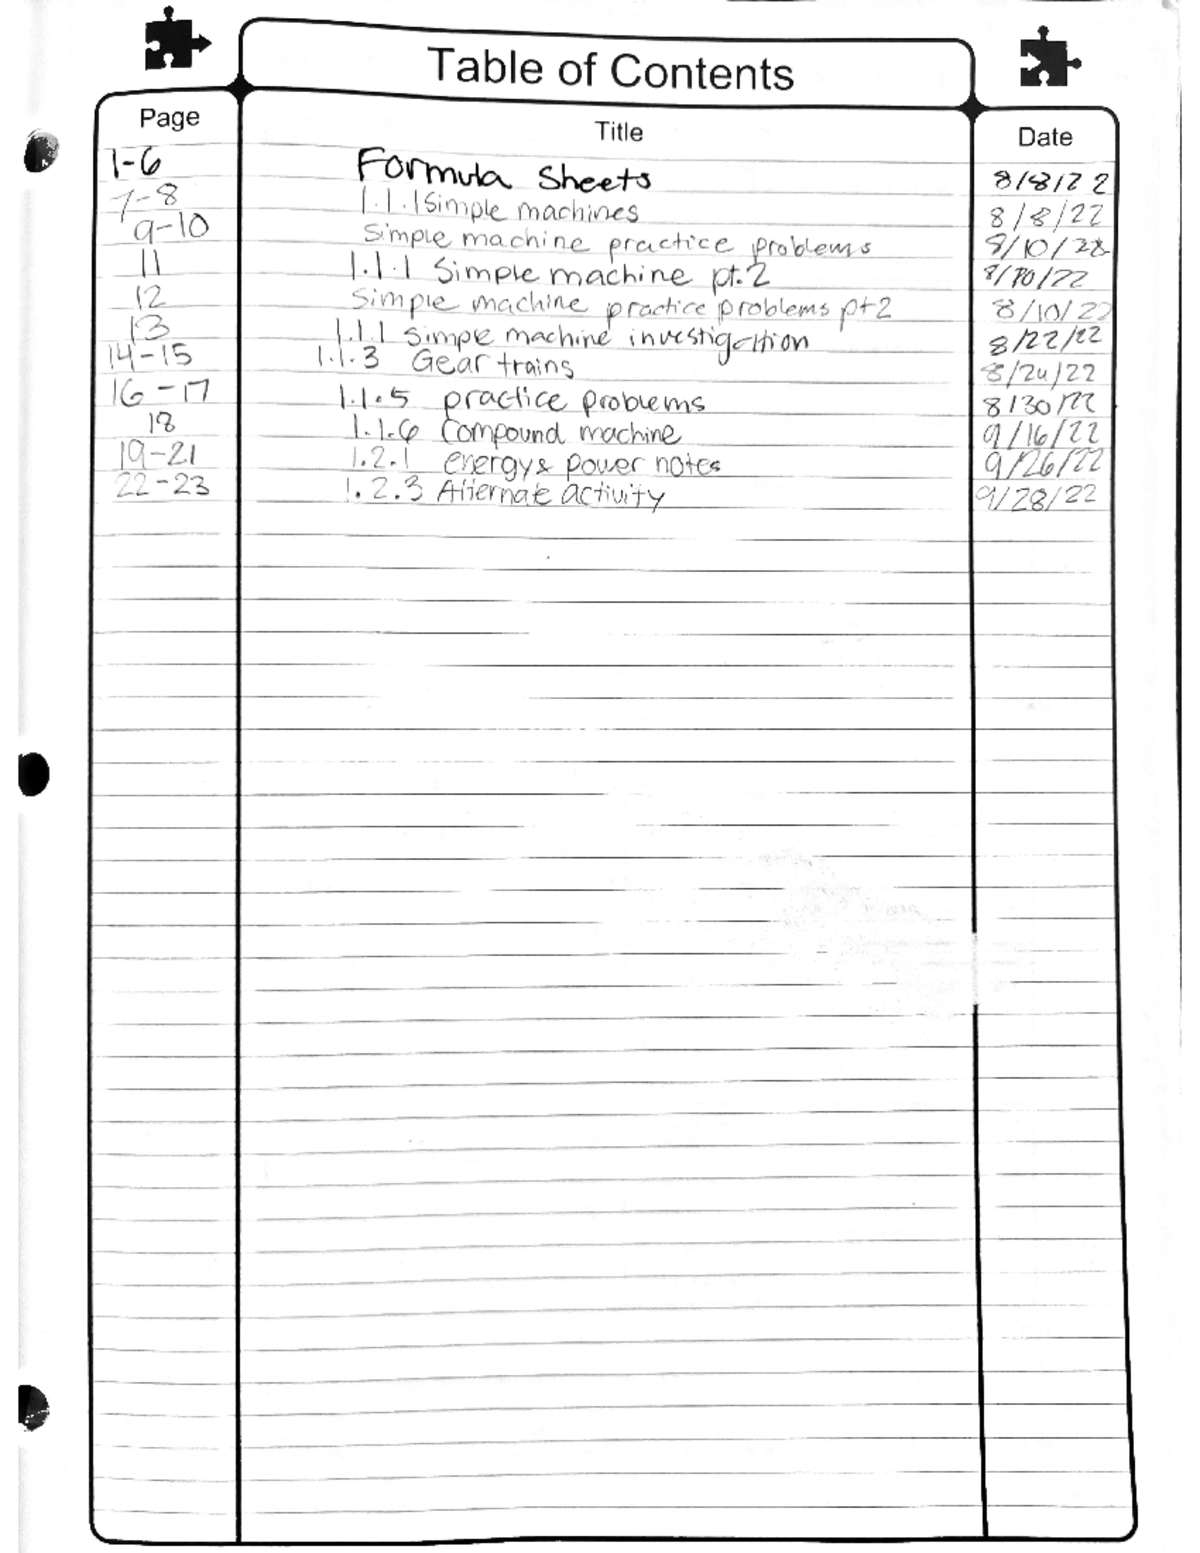 Table of Contents
Page Title Date
1-6 Formula Sheets 8/8/22
7-8 1.1.1 Simple machines 8/8/22
9-10 Simple machine practice problems 8/10/22
11 1.1.1 Simple machine pt.2 8/10/22
12 Simple machine practice problems pt2 8/10/22
13 1.1.1 simple machine investigation 8/22/22
14-15 1.1.3 Gear trains 8/24/22
16-17 1.1.5 practice problems 8/30/22
18 1.1.6 Compound machine 9/16/22
19-21 1.2.1 energy & power notes 9/26/22
22-23 1.2.3 Alternate activity 9/28/22